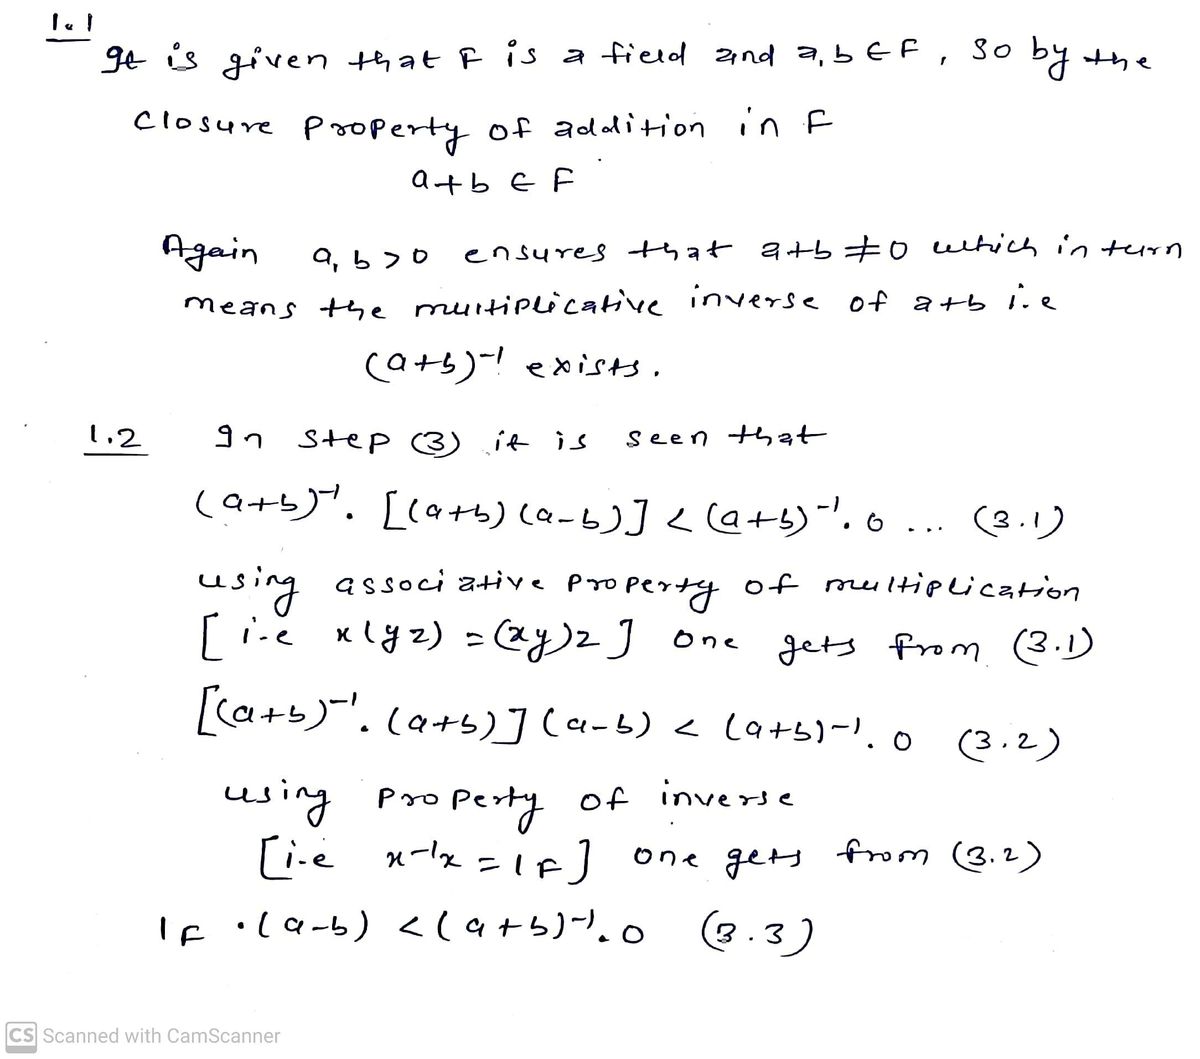 1.1
It is given that F is a field and a, b ∈ F, so by the
closure property of addition in F
a+b ∈ F
Again a, b > 0 ensures that a+b ≠ 0 which in turn
means the multiplicative inverse of a+b i.e
(a+b)⁻¹ exists.
1.2 In step (3) it is seen that
(a+b)⁻¹. [(a+b)(a-b)] < (a+b)⁻¹. 0 ... (3.1)
using associative property of multiplication
[i.e x(yz) = (xy)z] one gets from (3.1)
[(a+b)⁻¹. (a+b)](a-b) < (a+b)⁻¹. 0 (3.2)
using property of inverse
[i.e x⁻¹x = 1F] one gets from (3.2)
1F .(a-b) < (a+b)⁻¹. 0 (3.3)
CS Scanned with CamScanner